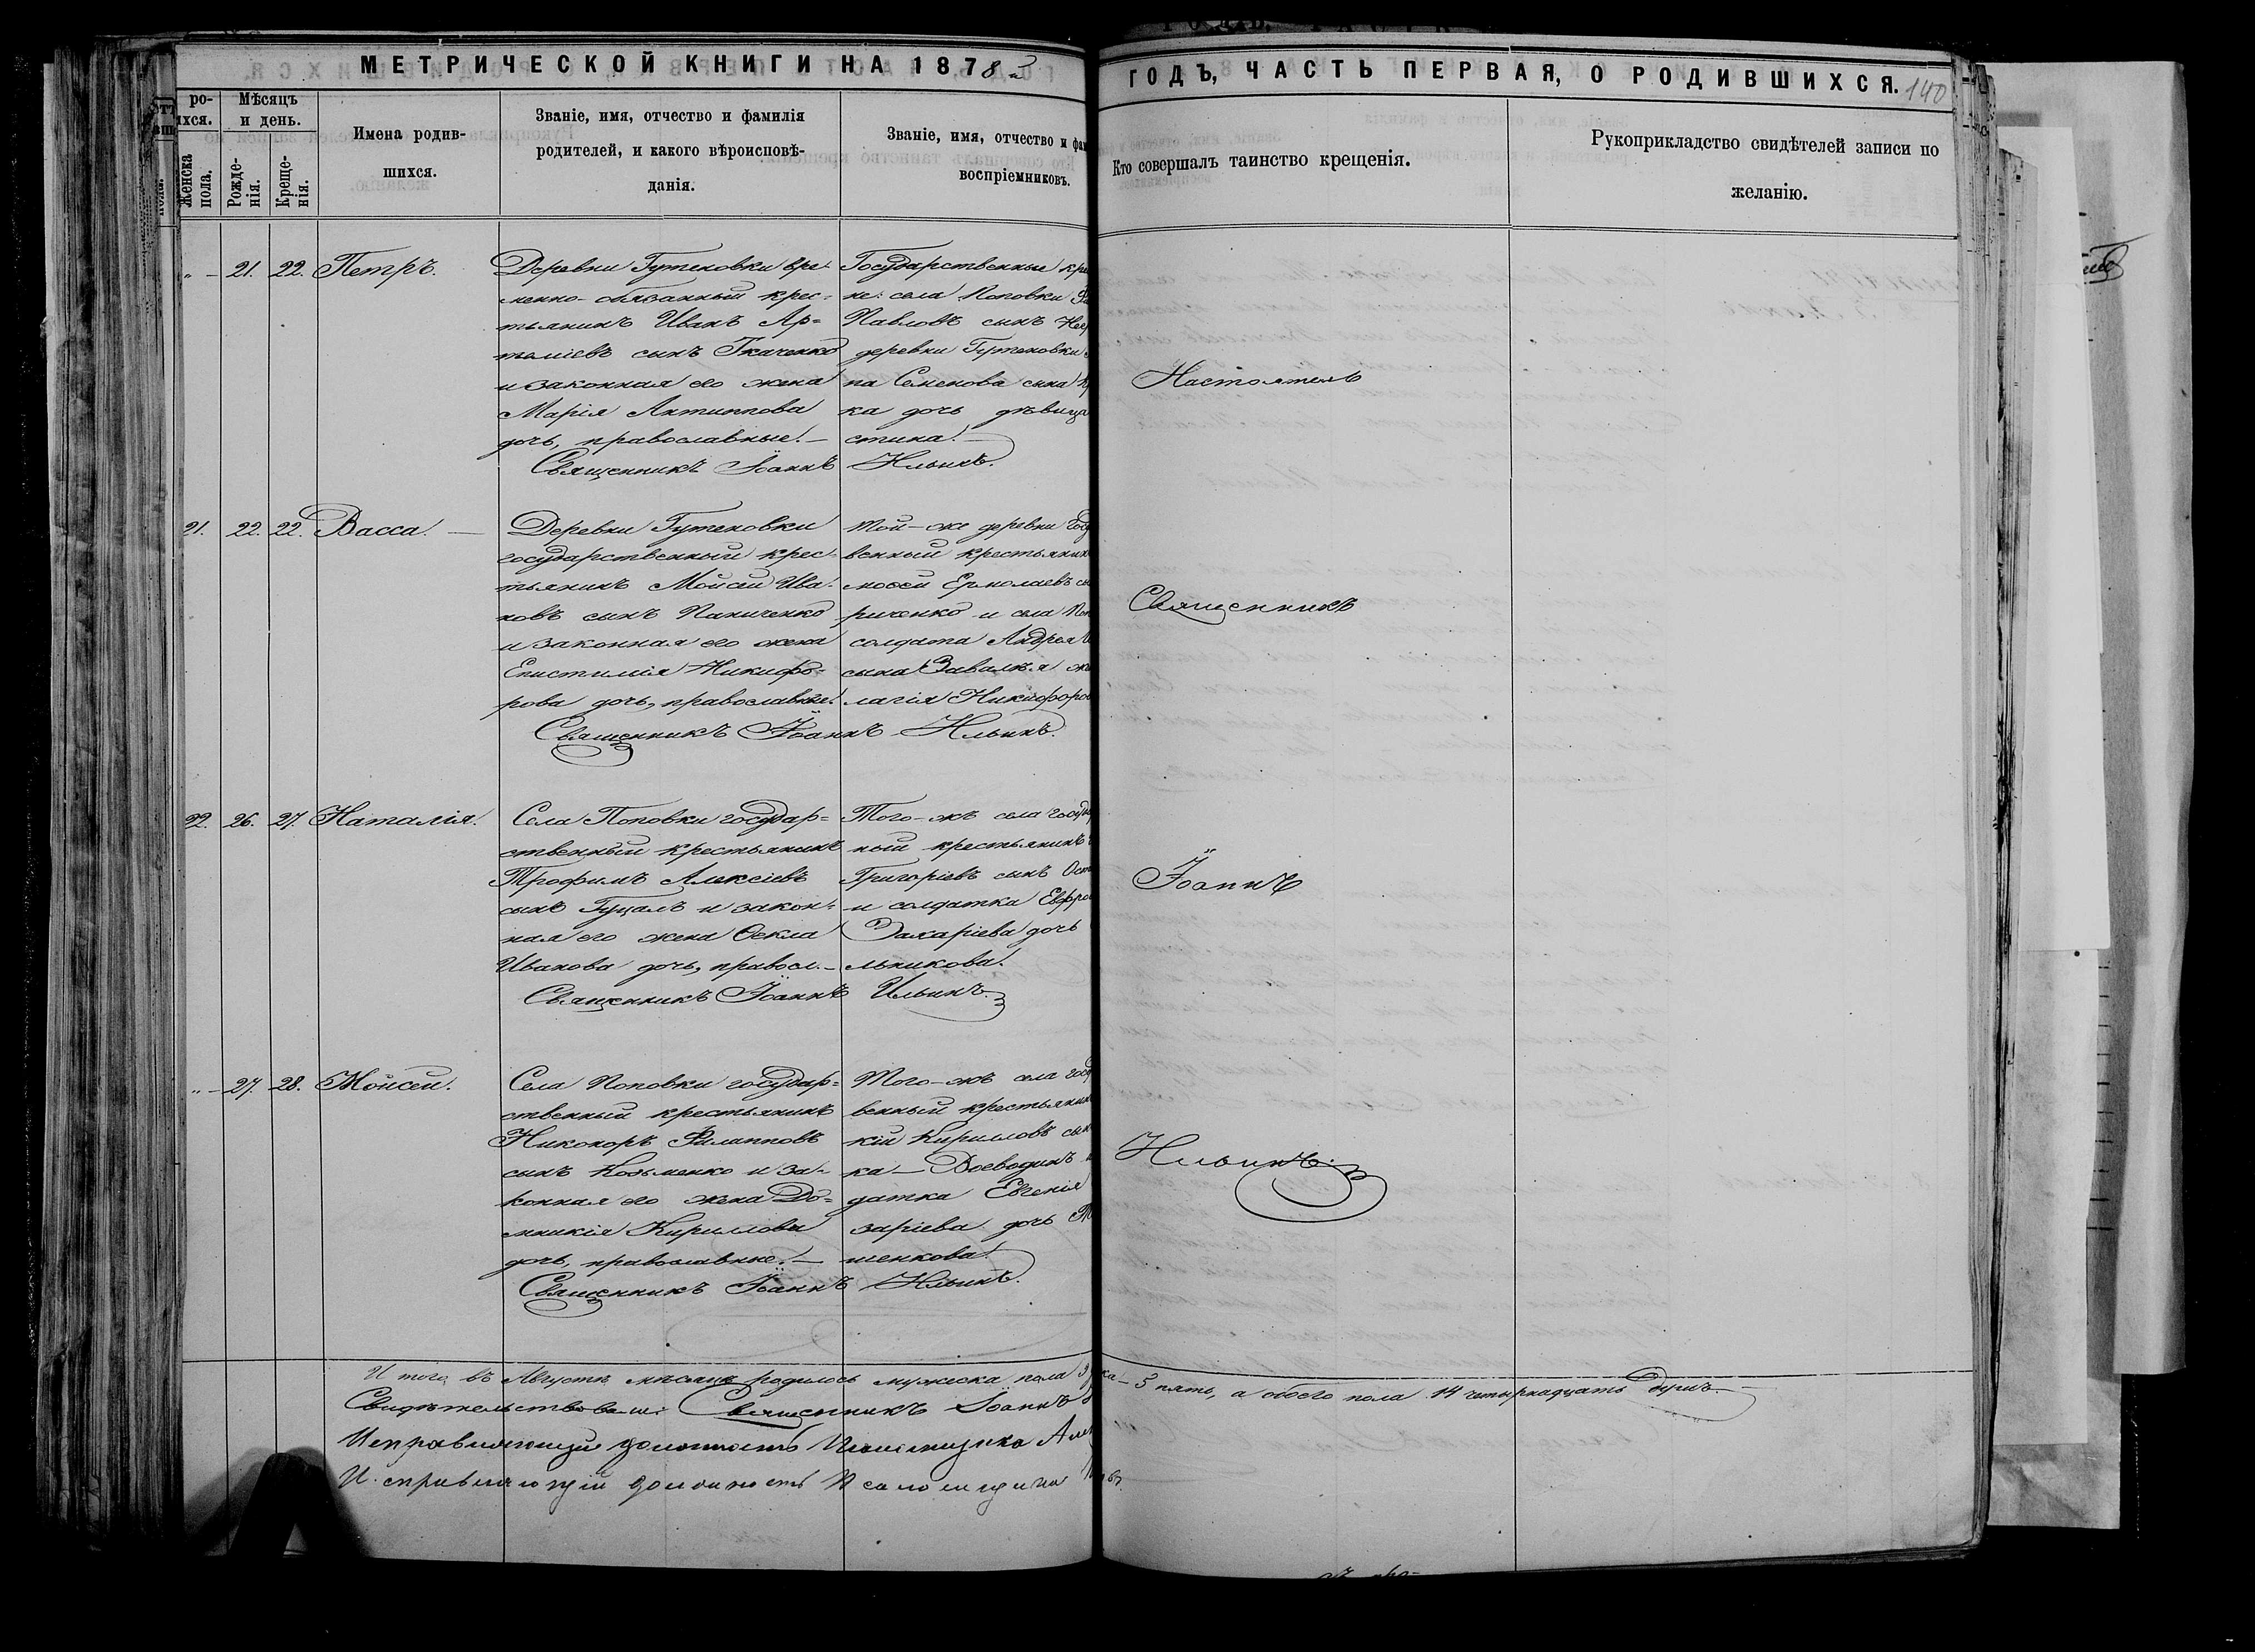 МЕТРИЧЕСКОЙ КНИГИ НА 1878
ГОДЪ, ЧАСТЬ ПЕРВАЯ, О РОДИВШИХСЯ. 140
ро-
ихся.
Мѣсяцъ
и день.
Женска
пола.
Рожде-
нія.
Креще-
нія.
Имена родив-
шихся.
Званіе, имя, отчество и фамилія
родителей, и какого вѣроисповѣ-
данія.
Званіе, имя, отчество и фам
воспріемниковъ.
Кто совершалъ таинство крещенія.
Рукоприкладство свидѣтелей записи по
желанію.
" — 21. 22. Петръ.
Деревни Гутеновки вре-
менно-обязанный крес-
тьянинъ Иванъ Ар-
теміевъ сынъ Ткаченко
и законная его жена
Марія Антиппова
дочь, православные. —
Государственные кре
не: села Поповки
Павловъ сынъ
деревни Гутеновки
па Семенова сына
ка дочь дѣвица
стина. —
Священникъ Іоаннъ Ильинъ.
21. 22. 22. Васса. —
Деревни Гутеновки
государственный крес-
тьянинъ Мойсей Ива-
новъ сынъ Паниченко
и законная его жена
Епистимія Никифо-
рова дочь, православные.
Той-же деревни госу
венный крестьянин
мофей Ермолаевъ сы
риченко и села Поп
солдата Андрея
сына Завалѣя же
лагія Никифоров
Священникъ Іоаннъ Ильинъ.
22. 26. 27. Наталія.
Села Поповки государ-
ственный крестьянинъ
Трофимъ Алексіевъ
сынъ Гуцалъ и закон-
ная его жена Ѳекла
Иванова дочь, правосл. —
Того-жъ села госуд
ный крестьянинъ
Григоріевъ сынъ Ост
и солдатка Евфро
Захаріева дочь
льникова.
Священникъ Іоаннъ Ильинъ.
" — 27. 28. Мойсей.
Села Поповки государ-
ственный крестьянинъ
Никоноръ Филипповъ
сынъ Козьменко и за-
конная его жена До-
мникія Кириллова
дочь, православные. —
Того-жъ села госу
венный крестьянин
кій Кирилловъ сын
ка — Воеводинъ
датка Евгенія
заріева дочь
шенкова.
Священникъ Іоаннъ Ильинъ.
Настоятель
Священникъ
Іоаннъ
Ильинъ.
И того въ Августѣ мѣсяцѣ родилось мужеска пола 9
ка — 5 пять, а обоего пола 14 четырнадцать душъ. —
Свидѣтельствовали: Священникъ Іоаннъ
Исправляющій должность Псаломщика
Исправляющій должность Псаломщика